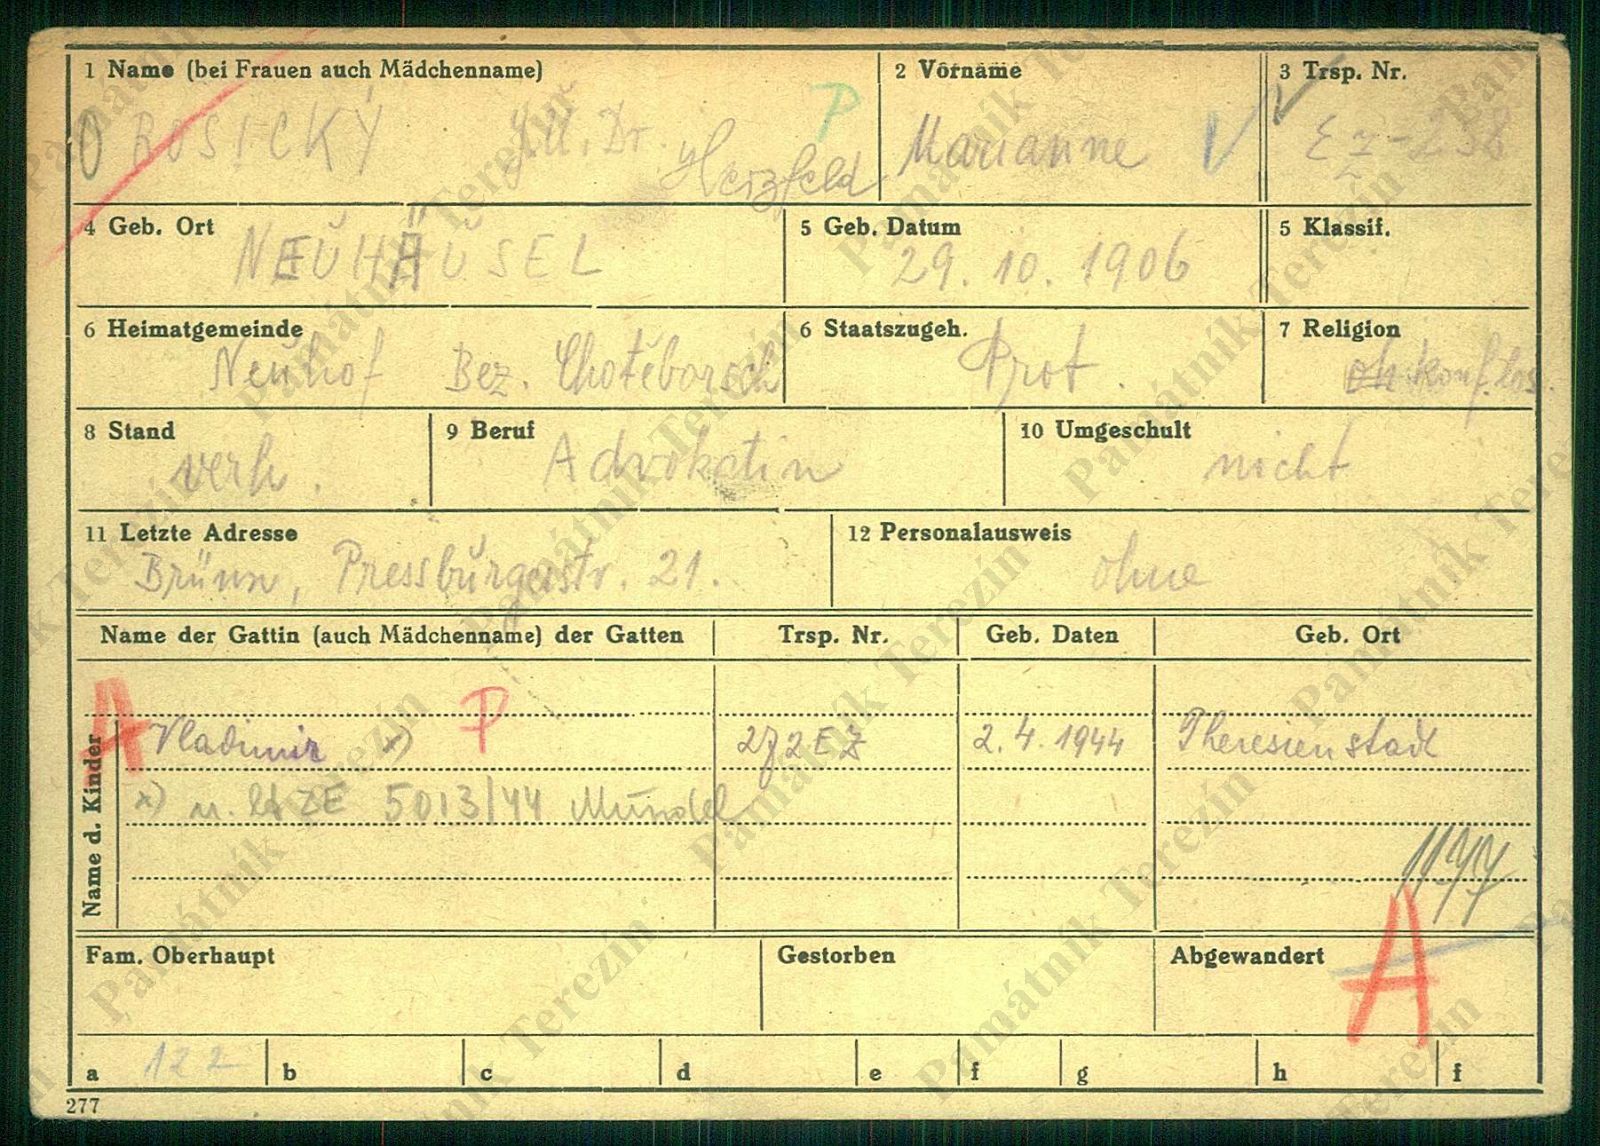 1 Name (bei Frauen auch Mädchenname)
ROSICKÝ JU. Dr. Herzfeld
P
2 Vorname
Marianne
3 Trsp. Nr.
Ez-238
4 Geb. Ort
NEŬHÄUSEL
5 Geb. Datum
29. 10. 1906
5 Klassif.
6 Heimatgemeinde
Neŭhof Bez. Chotěborsch
6 Staatszugeh.
Prot.
7 Religion
konf.los.
8 Stand
verh.
9 Beruf
Advokatin
10 Umgeschult
nicht
11 Letzte Adresse
Brünn, Pressbŭrgerstr. 21.
12 Personalausweis
ohne
Name der Gattin (auch Mädchenname) der Gatten
Trsp. Nr.
Geb. Daten
Geb. Ort
Name d. Kinder
A Vladimir x) P
EZ
2. 4. 1944
Theresienstadt
x) ZE 5013/44 Mündel
A
Fam. Oberhaupt
Gestorben
Abgewandert
a 122 b c d e f g h f
277
Památník Terezín